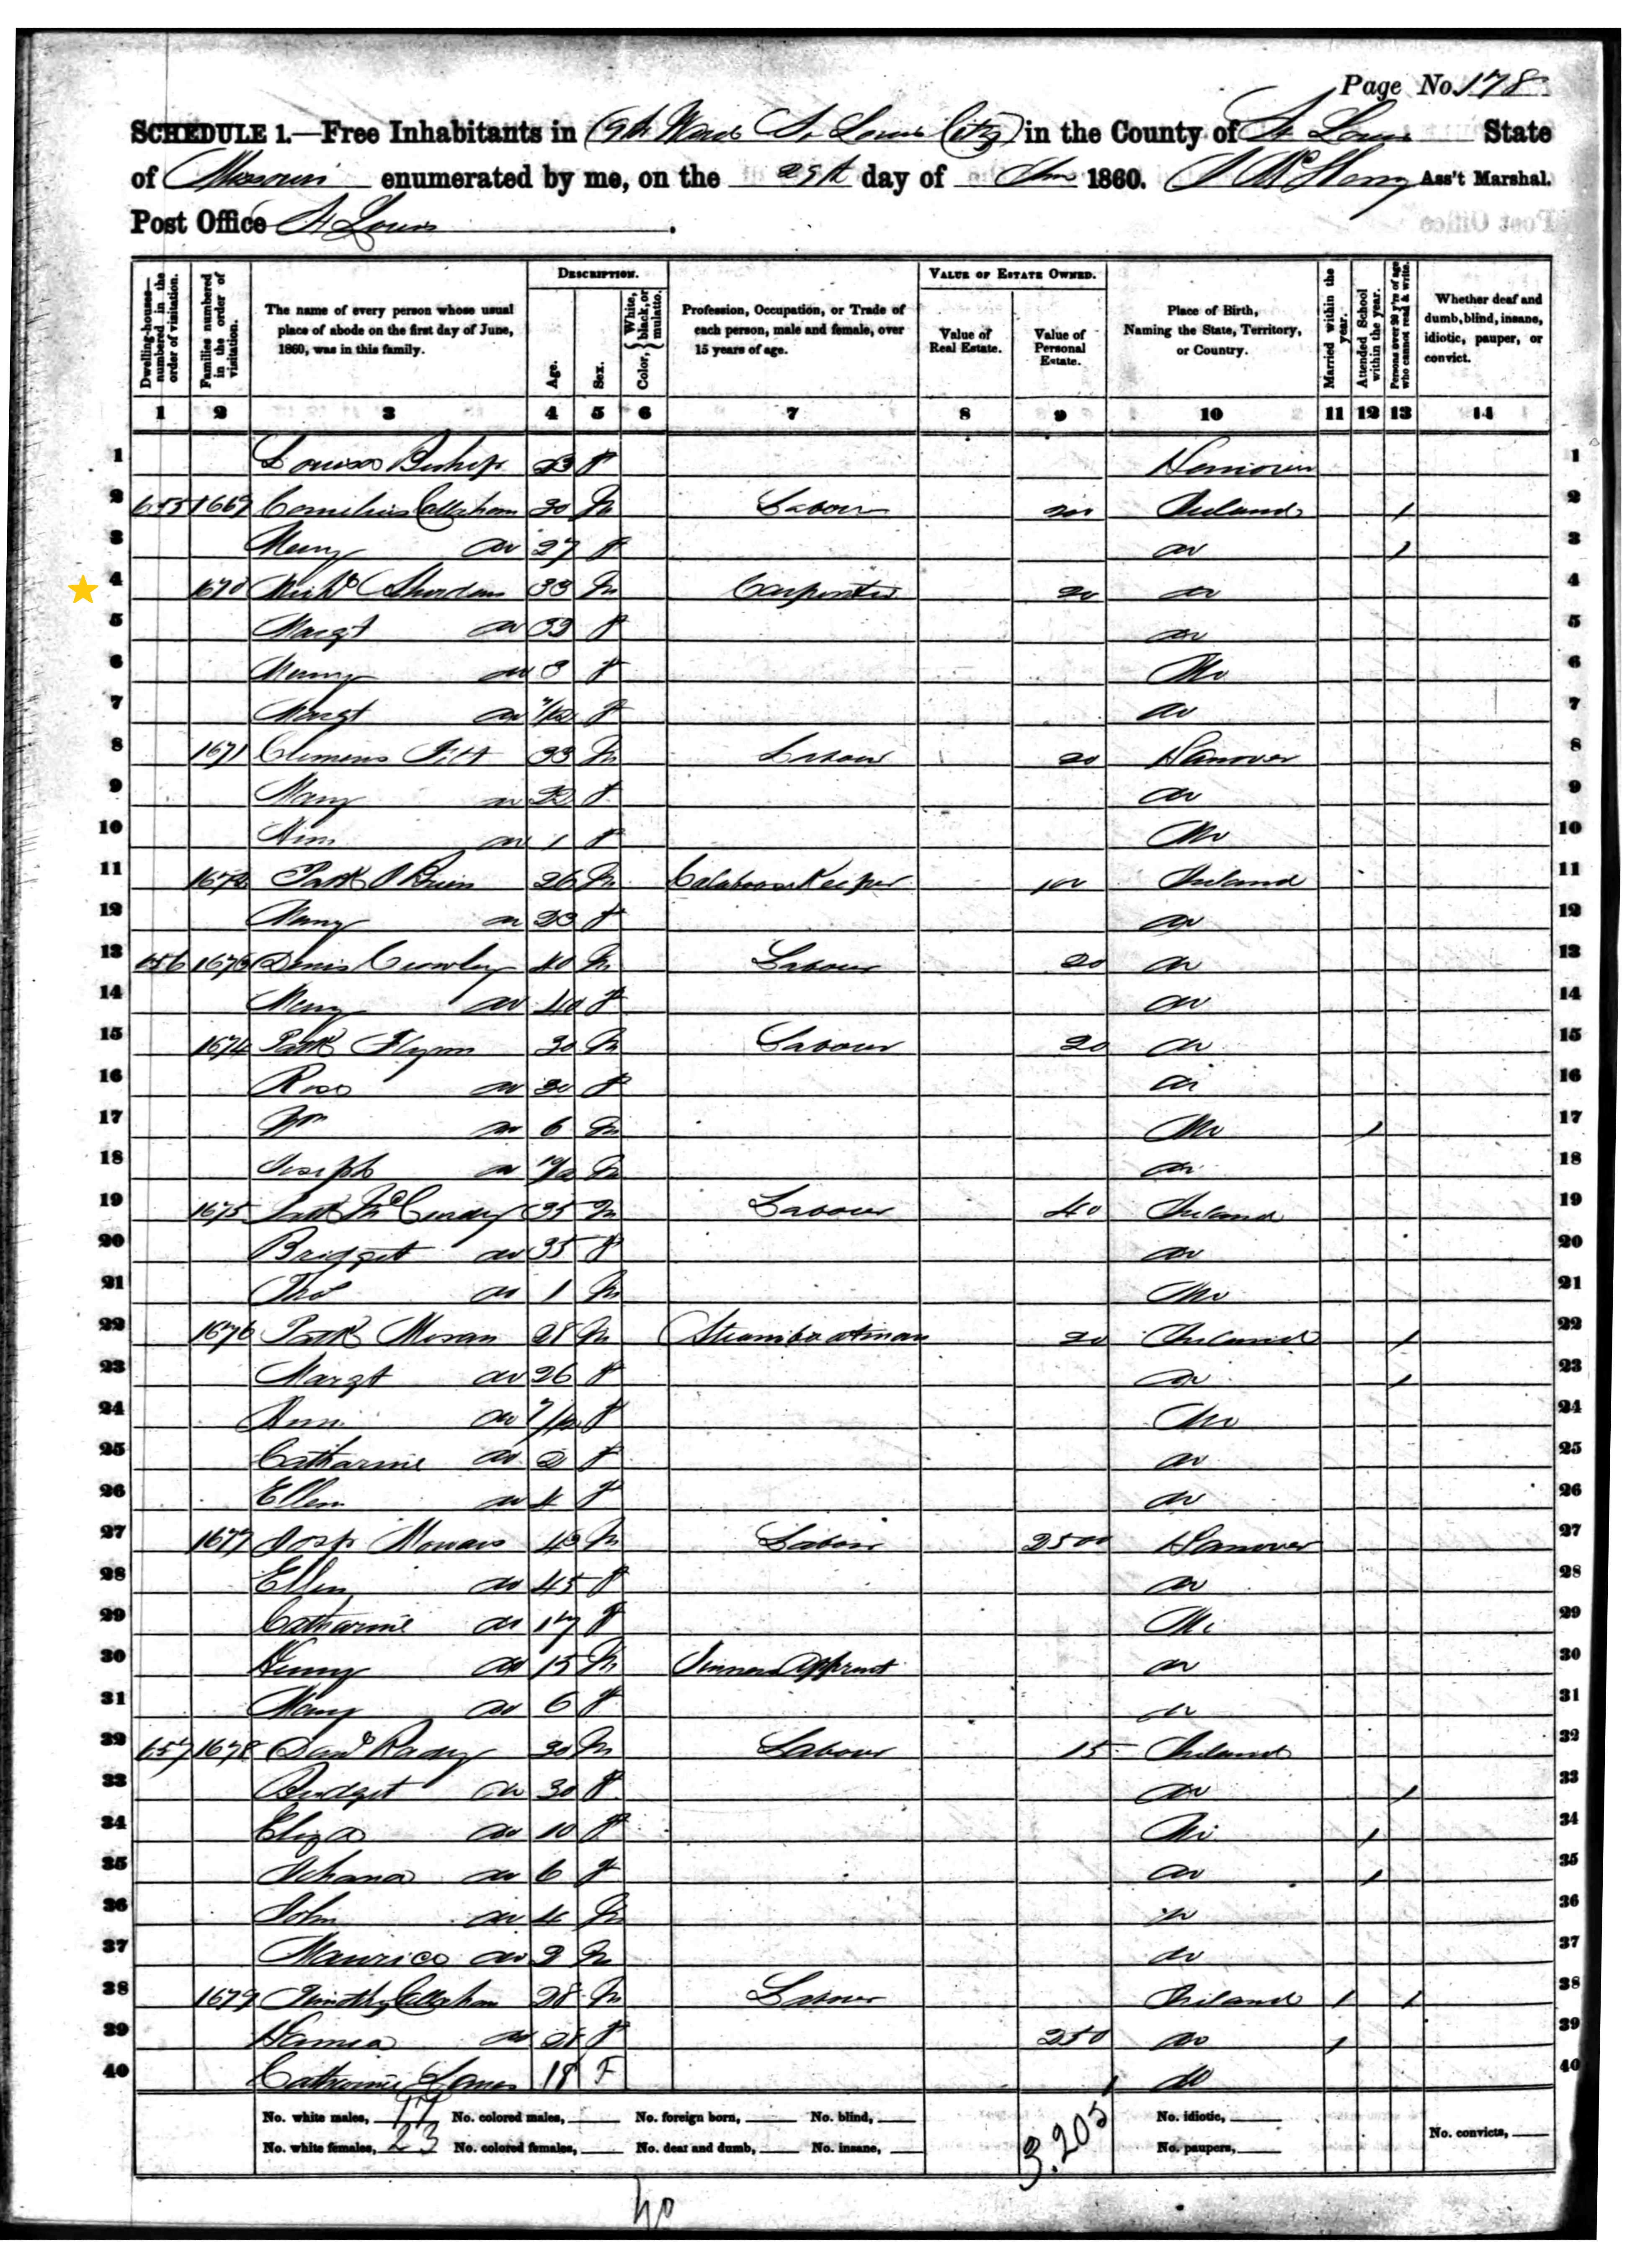 Page No. 178
SCHEDULE 1.—Free Inhabitants in 9th Ward St Louis City in the County of St Louis State
of Missouri enumerated by me, on the 29th day of 1860. Ass't Marshal.
Post Office St Louis
Dwelling-houses—numbered in the order of visitation.
Families numbered in the order of visitation.
The name of every person whose usual place of abode on the first day of June, 1860, was in this family.
DESCRIPTION.
Age.
Sex.
Color, { White, black, or mulatto.
Profession, Occupation, or Trade of each person, male and female, over 15 years of age.
VALUE OF ESTATE OWNED.
Value of Real Estate.
Value of Personal Estate.
Place of Birth, Naming the State, Territory, or Country.
Married within the year.
Attended School within the year.
Persons over 20 y'rs of age who cannot read & write.
Whether deaf and dumb, blind, insane, idiotic, pauper, or convict.
1 2 3 4 5 6 7 8 9 10 11 12 13 14
1 Louisa Bishop 23 f 1
2 655 1669 Cornelius Callahan 30 m Labour Ireland / 2
3 Mary do 27 f do / 3
4 1670 Mich Sheridan 33 m Carpenter 20 do 4
5 Margt do 33 f do 5
6 Mary do 3 f Mo 6
7 Margt do f do 7
8 1671 Clemens 33 m Labour 20 Hanover 8
9 Mary do 22 f do 9
10 Ann do 1 f Mo 10
11 1672 Patk O Brien 26 m Calaboose Keeper 100 Ireland 11
12 Mary do 23 f do 12
13 656 1673 Denis Crowley 40 m Labour 20 do 13
14 Mary do 40 f do 14
15 1674 Patk Flynn 30 m Labour 20 do 15
16 Rose do 30 f do 16
17 Wm do 6 m Mo / 17
18 Joseph do m do 18
19 1675 Patk 35 m Labour 40 Ireland 19
20 Bridget do 35 f do 20
21 Tho do 1 m Mo 21
22 1676 Patk Moran 28 m Steamboatman 20 Ireland / 22
23 Margt do 26 f do / 23
24 Ann do 7/12 f Mo 24
25 Catharine do 2 f do 25
26 Ellen do 4 f do 26
27 1677 Josh m Labour 2500 Hanover 27
28 Ellen do 45 f do 28
29 Catharine do 17 f Mo 29
30 Henry do 15 m Tinners Apprent do 30
31 Mary do 6 f do 31
32 657 1678 Danl Rady 30 m Labour 15 Ireland 32
33 Bridget do 30 f do / 33
34 Eliza do 10 f Mo / 34
35 Johana do 6 f do / 35
36 John do 4 m do 36
37 Maurice do 2 m do 37
38 1679 Timothy Callahan 28 m Labour Ireland / / 38
39 do 28 f 250 do / 39
40 Catherine 18 F do 40
No. white males, 17 No. colored males, No. foreign born, No. blind, 3.205 No. idiotic,
No. white females, 23 No. colored females, No. deaf and dumb, No. insane, No. paupers, No. convicts,
40